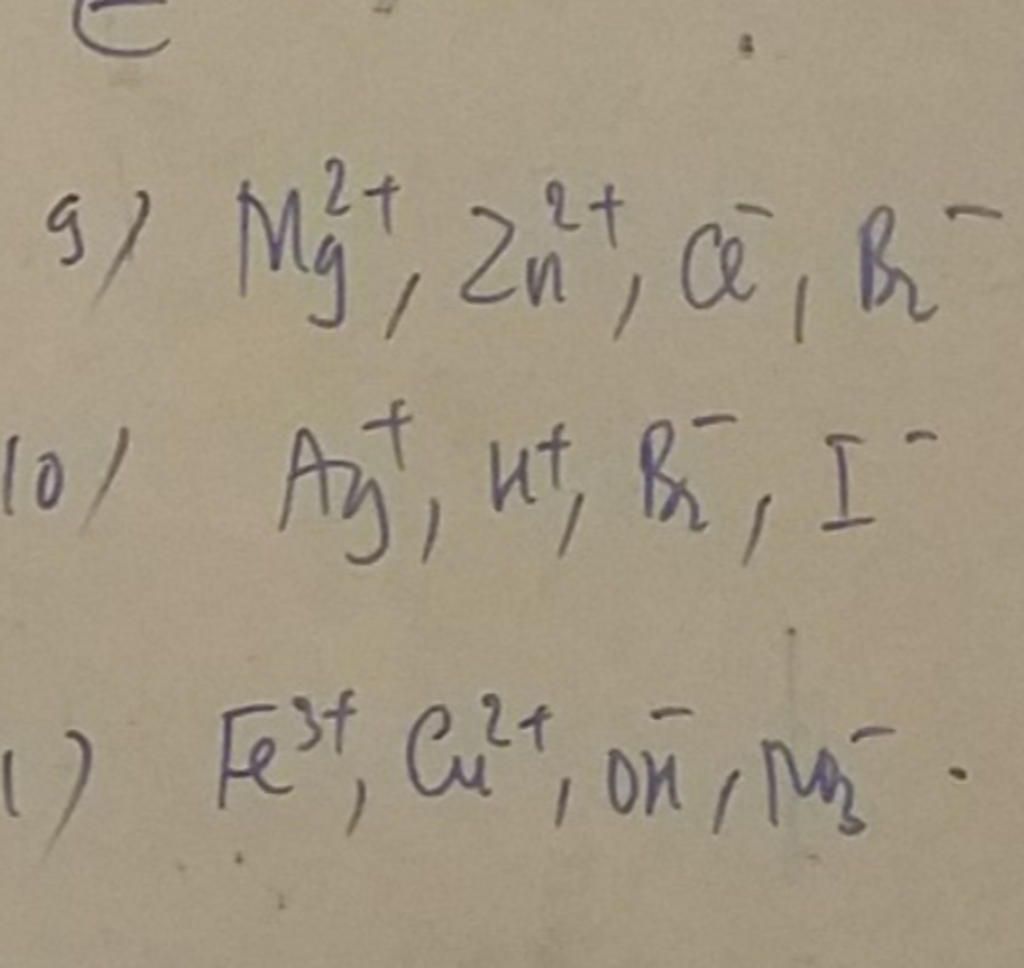 9) Mg²⁺, Zn²⁺, Cl⁻, Br⁻
10) Ag⁺, H⁺, Br⁻, I⁻
1) Fe³⁺, Cu²⁺, OH⁻, NO₃⁻.